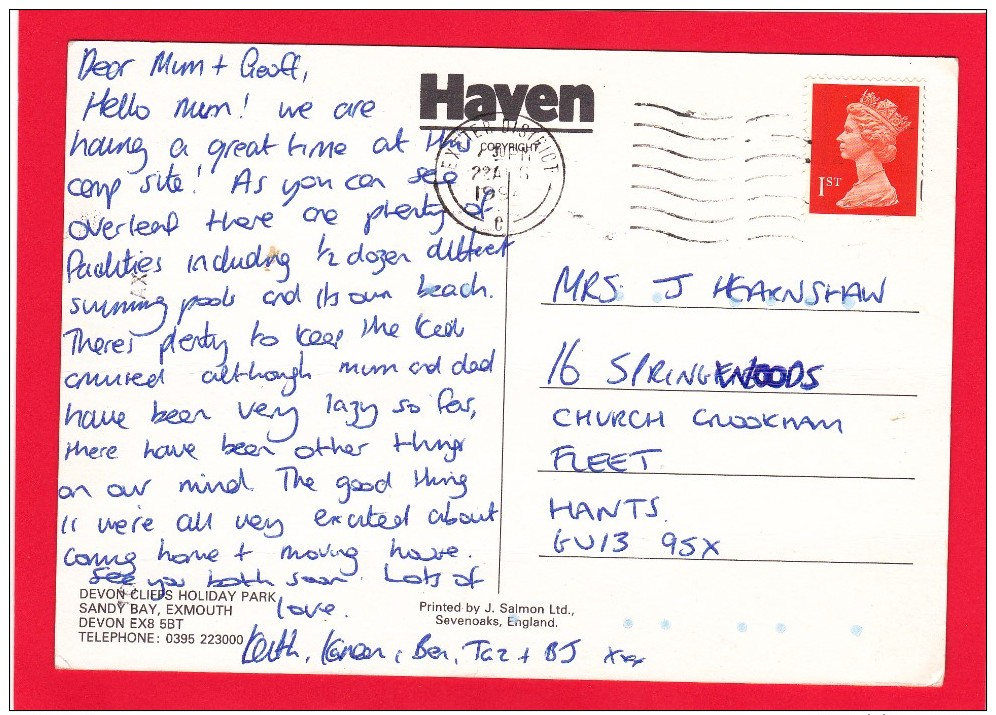 Dear Mum + Geoff,
Hello mum! we are
having a great time at this
camp site! As you can see
overleaf there are plenty of
facilities including 1/2 dozen different
swimming pools and its own beach.
Theres plenty to keep the kids
amused although mum and dad
have been very lazy so far,
there have been other things
on our mind. The good thing
is we're all very excited about
coming home + moving house.
See you both soon. Lots of
love.
Keith, Karen, Ben, Taz + BJ xxx
DEVON CLIFFS HOLIDAY PARK
SANDY BAY, EXMOUTH
DEVON EX8 5BT
TELEPHONE: 0395 223000
Haven
COPYRIGHT
EXETER DISTRICT
e
1ST
MRS J HEARNSHAW
16 SPRINGWOODS
CHURCH CROOKHAM
FLEET
HANTS.
GU13 9SX
Printed by J. Salmon Ltd.,
Sevenoaks, England.